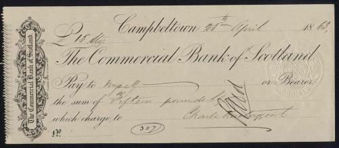 Campbeltown 28th April 1863
£15 Stg
The Commercial Bank of Scotland
Pay to myself or Bearer
the sum of Fifteen pounds Stg
which charge to
Charle
307
The Commercial Bank of Scotland